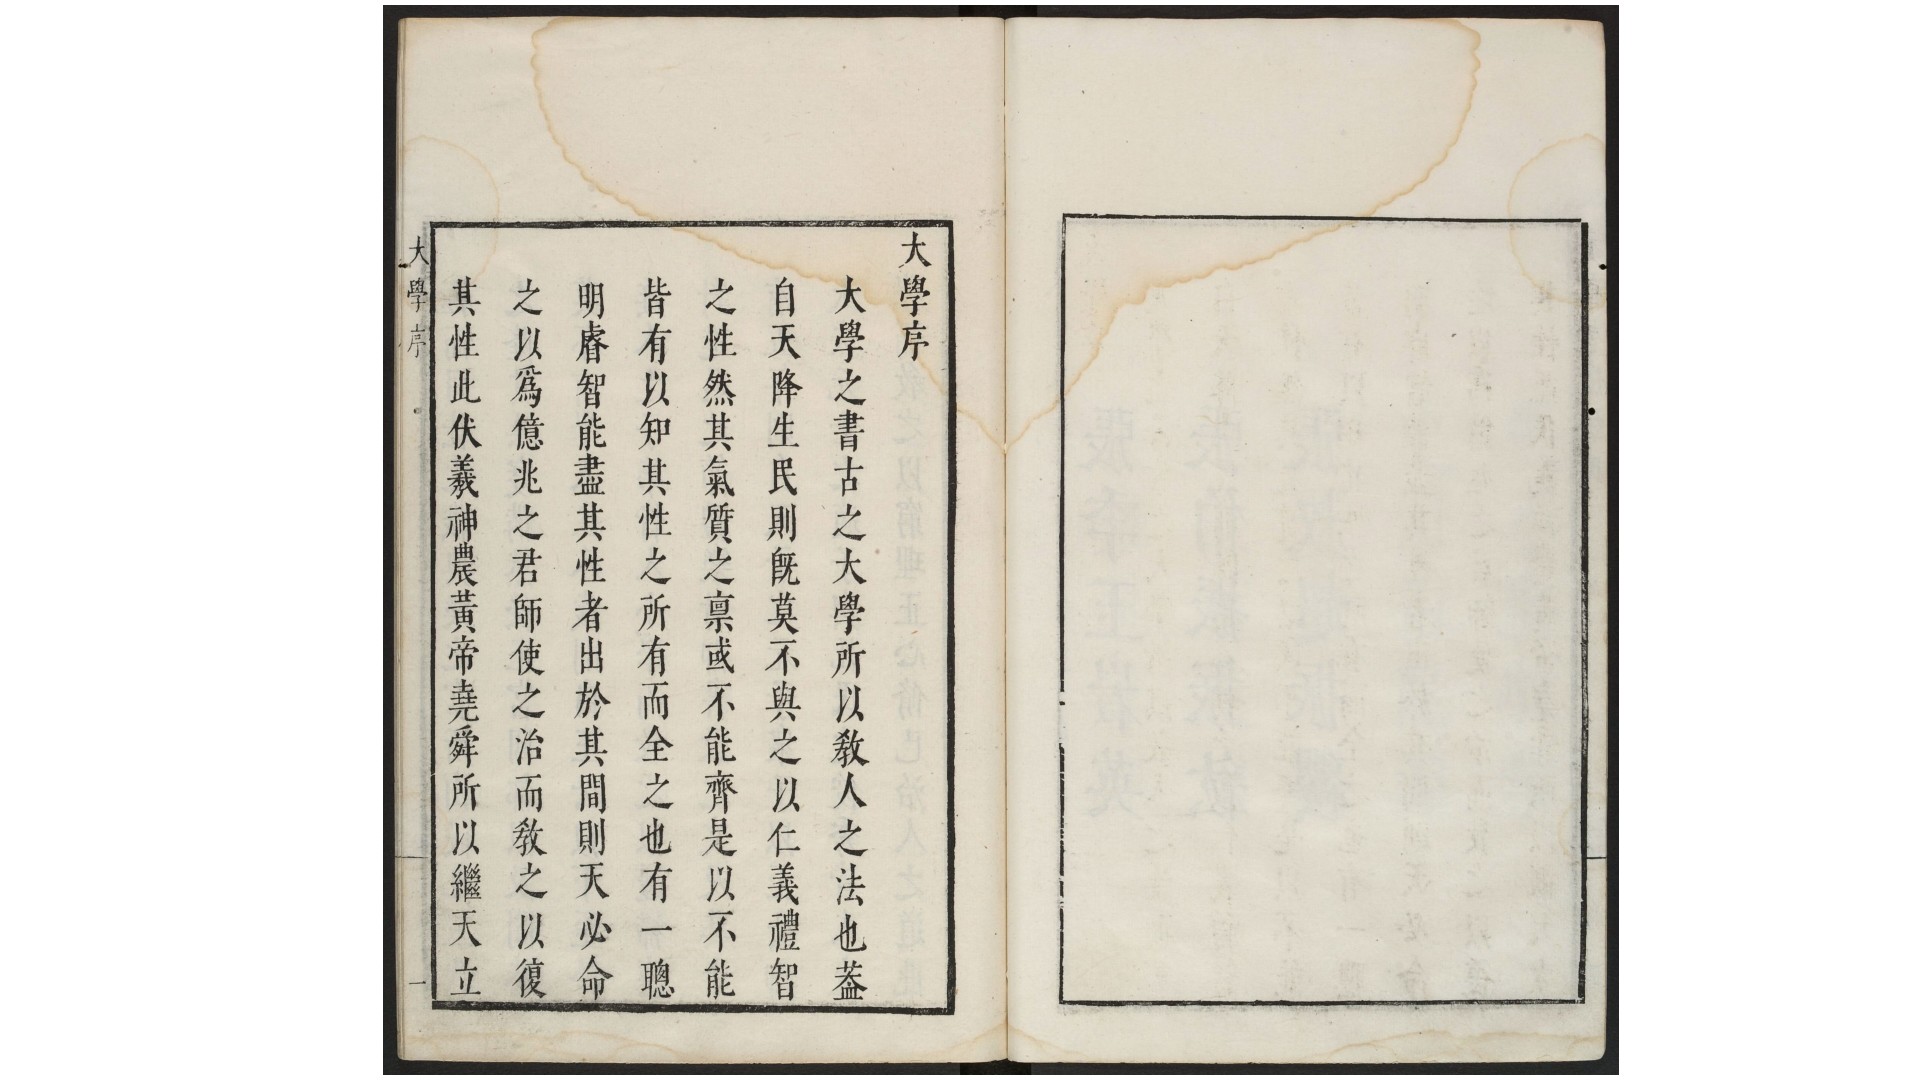 大學序
大學之書古之大學所以敎人之法也葢
自天降生民則旣莫不與之以仁義禮智
之性然其氣質之禀或不能齊是以不能
皆有以知其性之所有而全之也有一聰
明睿智能盡其性者出於其間則天必命
之以爲億兆之君師使之治而敎之以復
其性此伏羲神農黃帝堯舜所以繼天立
大學序
一